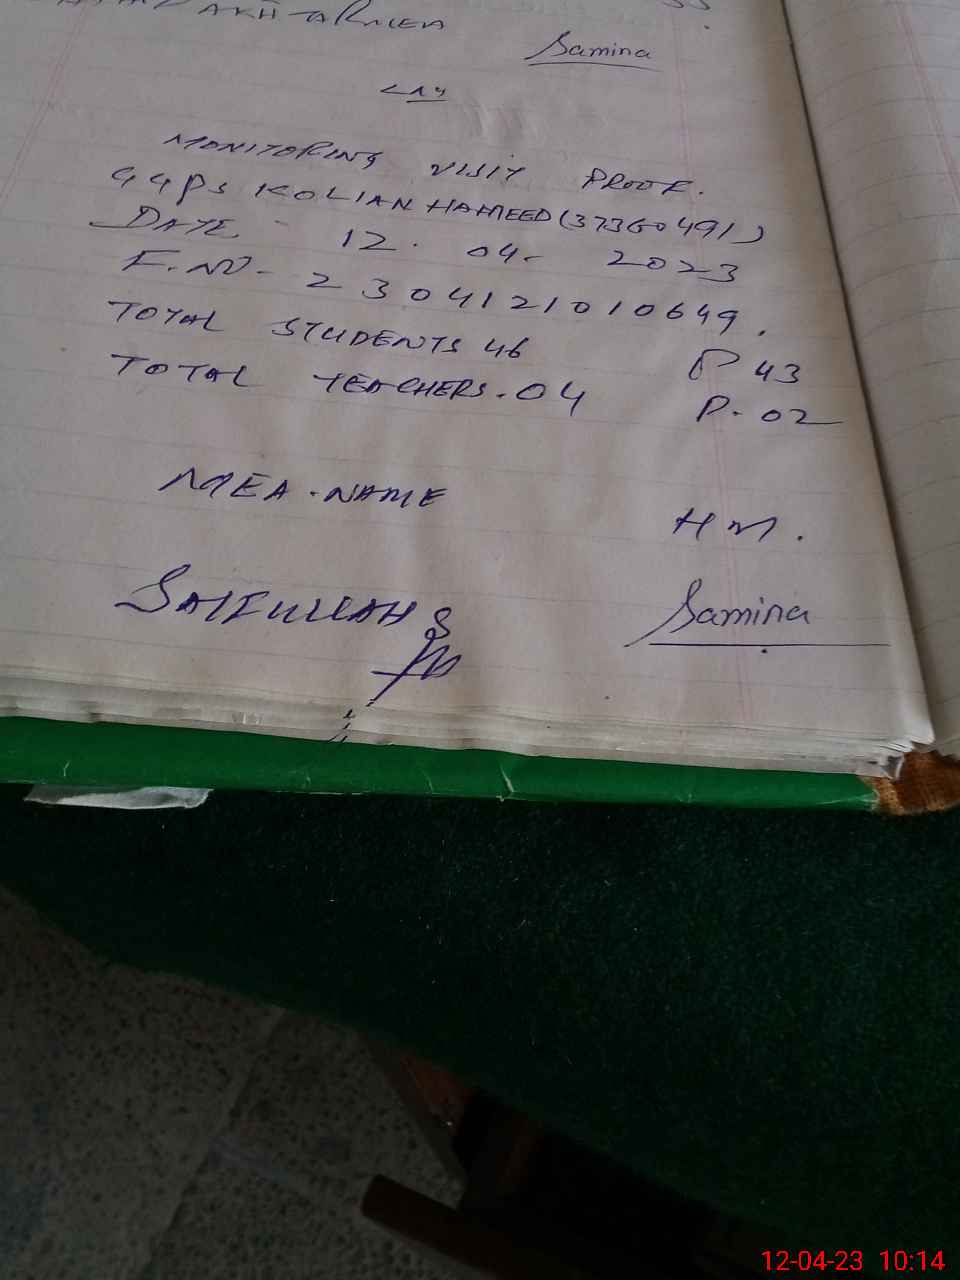 AKHTAR MEA
Samina
MONITORING VISIT PROOF.
GGPS KOLIAN HAMEED (37360491)
DATE - 12. 04- 2023
F.NO- 2304121010649.
TOTAL STUDENTS 46 P 43
TOTAL TEACHERS. 04 P. 02
MEA. NAME
HM.
SAIFULLAH
Samina
12-04-23 10:14